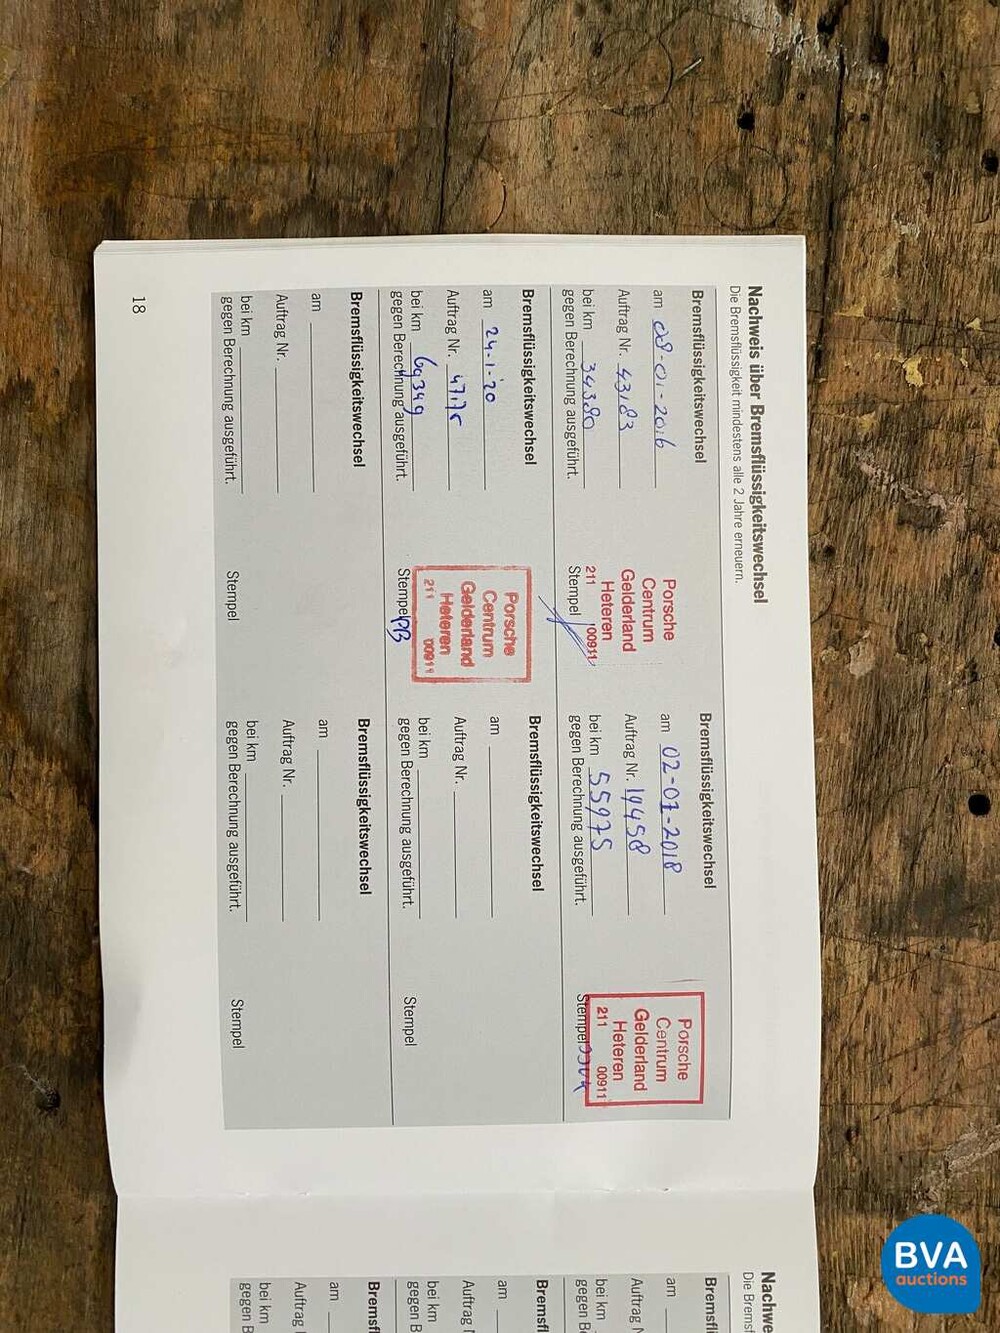 Nachweis über Bremsflüssigkeitswechsel
Die Bremsflüssigkeit mindestens alle 2 Jahre erneuern.
Bremsflüssigkeitswechsel
am 08-01-2016
Auftrag Nr. 43183
bei km 34380
gegen Berechnung ausgeführt.
Porsche
Centrum
Gelderland
Heteren
211 00911
Stempel
Bremsflüssigkeitswechsel
am 02-01-2018
Auftrag Nr. 14458
bei km 55975
gegen Berechnung ausgeführt.
Porsche
Centrum
Gelderland
Heteren
211 00911
Stempel
Bremsflüssigkeitswechsel
am 24-1-'20
Auftrag Nr.
bei km 69349
gegen Berechnung ausgeführt.
Porsche
Centrum
Gelderland
Heteren
211 00911
Stempel PB
Bremsflüssigkeitswechsel
am
Auftrag Nr.
bei km
gegen Berechnung ausgeführt.
Stempel
Bremsflüssigkeitswechsel
am
Auftrag Nr.
bei km
gegen Berechnung ausgeführt.
Stempel
Bremsflüssigkeitswechsel
am
Auftrag Nr.
bei km
gegen Berechnung ausgeführt.
Stempel
18
Nachwe
Die Bremsf
Bremsfl
am
Auftrag N
bei km
gegen B
Bremsfl
am
Auftrag N
bei km
gegen B
Bremsfl
am
Auftrag
bei km
gegen B
BVA
auctions